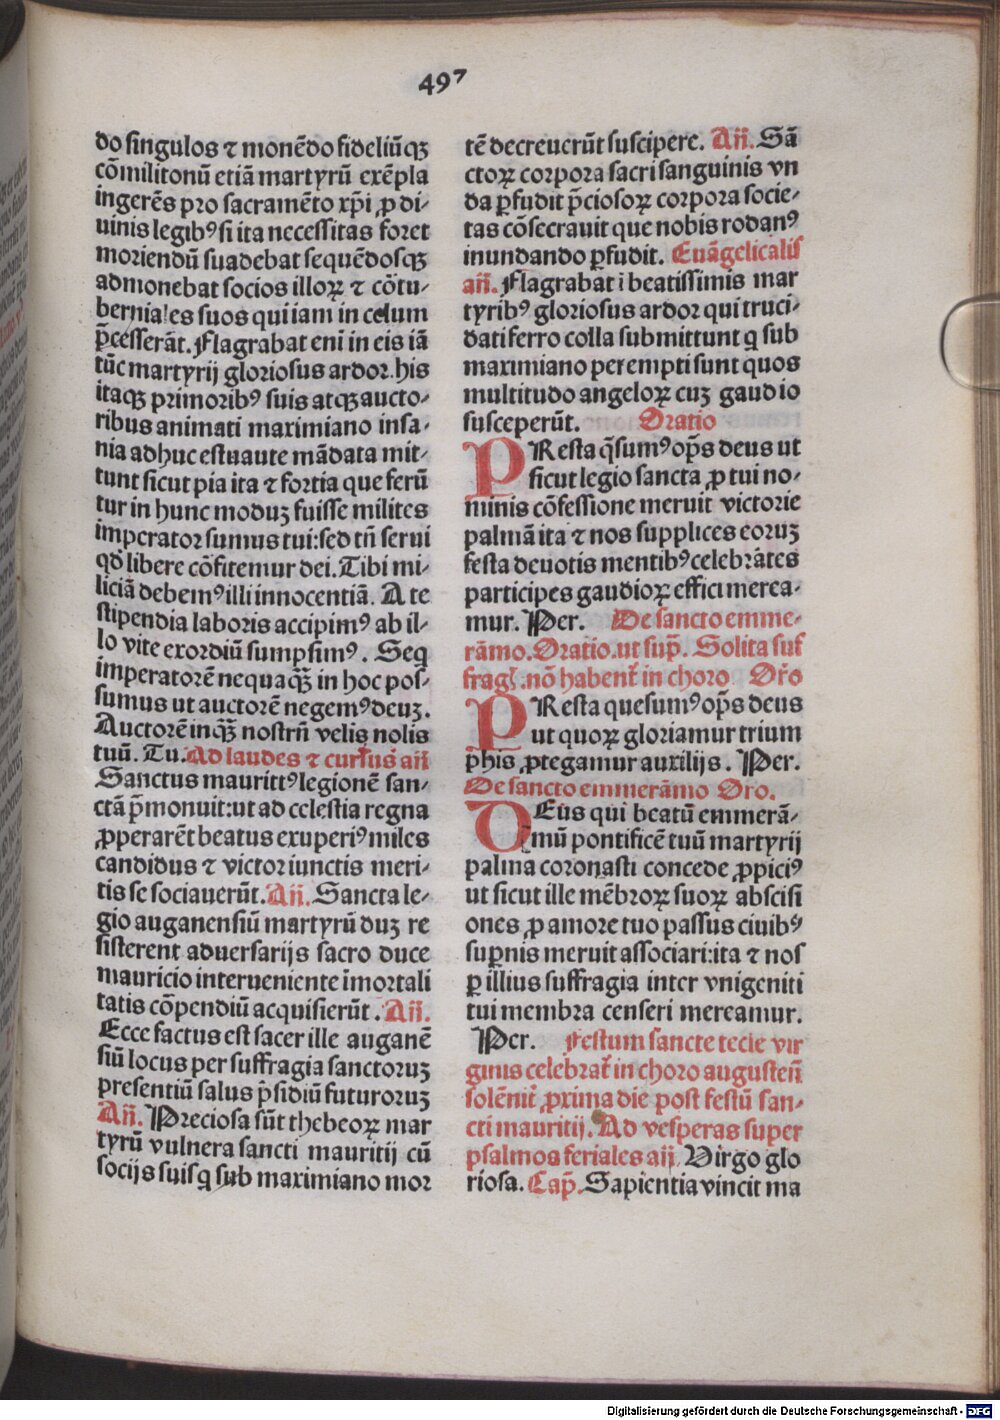 497
do singulos ⁊ monēdo fideliūqꝫ
cōmilitonū etiā martyrū exēpla
ingerēs pro sacramēto xp̄i ꝓ di-
uinis legibꝰ si ita necessitas foret
moriendū suadebat sequēdosqꝫ
admonebat socios illoꝝ ⁊ cōtu-
bernia!es suos qui iam in celum
p̄cesserāt. Flagrabat eni̅ in eis iā
tūc martyrij gloriosus ardor. his
itaqꝫ primoribꝰ suis atqꝫ aucto-
ribus animati maximiano insa-
nia adhuc estuaute mādata mit-
tunt sicut pia ita ⁊ fortia que ferū
tur in hunc moduꝫ fuisse milites
imperator sumus tui: sed tn̄ serui
qd̓ libere cōfitemur dei. Tibi mi-
liciā debemꝰ illi innocentiā. A te
stipendia laboris accipimꝰ ab il-
lo vite exordiū sumpsimꝰ. Seq
imperatorē nequaqꝫ̄ in hoc pos-
sumus ut auctorē negemꝰ deuꝫ.
Auctorē inqꝫ̄ nostrū velis nolis
tuū. Tu. Ad laudes ⁊ cursus an̄
Sanctus maurittꝰ legionē san-
ctā p̄monuit: ut ad celestia regna
ꝓperarēt beatus exuperiꝰ miles
candidus ⁊ victor iunctis meri-
tis se sociauerūt. An̄. Sancta le-
gio auganensiū martyrū duꝫ re
sisterent aduersarijs sacro duce
mauricio interueniente īmortali
tatis cōpendiū acquisierūt. An̄.
Ecce factus est sacer ille auganē
siū locus per suffragia sanctoruꝫ
presentiū salus p̄sidiū futuroruꝫ
An̄. Preciosa sūt thebeoꝝ mar
tyrū vulnera sancti mauritij cū
socijs suis q sub maximiano mor
tē decreuerūt suscipere. An̄. Sā
ctoꝝ corpora sacri sanguinis vn
da ꝑfudit p̄ciosoꝝ corpora socie-
tas cōsecrauit que nobis rodanꝰ
inundando ꝑfudit. Euāgelicalis
an̄. Flagrabat i beatissimis mar
tyribꝰ gloriosus ardor qui truci-
dati ferro colla submittunt q sub
maximiano perempti sunt quos
multitudo angeloꝝ cuꝫ gaudio
susceperūt. Oratio
PResta q̄sumꝰ op̄s deus ut
sicut legio sancta ꝓ tui no-
minis cōfessione meruit victorie
palmā ita ⁊ nos supplices eoruꝫ
festa deuotis mentibꝰ celebrātes
participes gaudioꝝ effici merea-
mur. Per. De sancto emme-
rāmo. Oratio. ut sup̄. Solita suf
fraḡ. nō habent̄ in choro Or̄o
PResta quesumꝰ op̄s deus
ut quoꝝ gloriamur trium
phis ꝓtegamur auxilijs. Per.
De sancto emmerāmo Oro.
DEus qui beatū emmerā-
mū pontificē tuū martyrij
palma coronasti concede ꝓpiciꝰ
ut sicut ille mēbroꝝ suoꝝ abscisi
ones ꝓ amore tuo passus ciuibꝰ
suꝑnis meruit associari: ita ⁊ nos
ꝑ illius suffragia inter vnigeniti
tui membra censeri mereamur.
Per. Festum sancte tecle vir
ginis celebrat̄ in choro augusten̄
solēnit̄ ꝓxima die post festū san-
cti mauritij. Ad vesperas super
psalmos feriales an̄ Virgo glo
riosa. Cap̄. Sapientia vincit ma
Digitalisierung gefördert durch die Deutsche Forschungsgemeinschaft - DFG